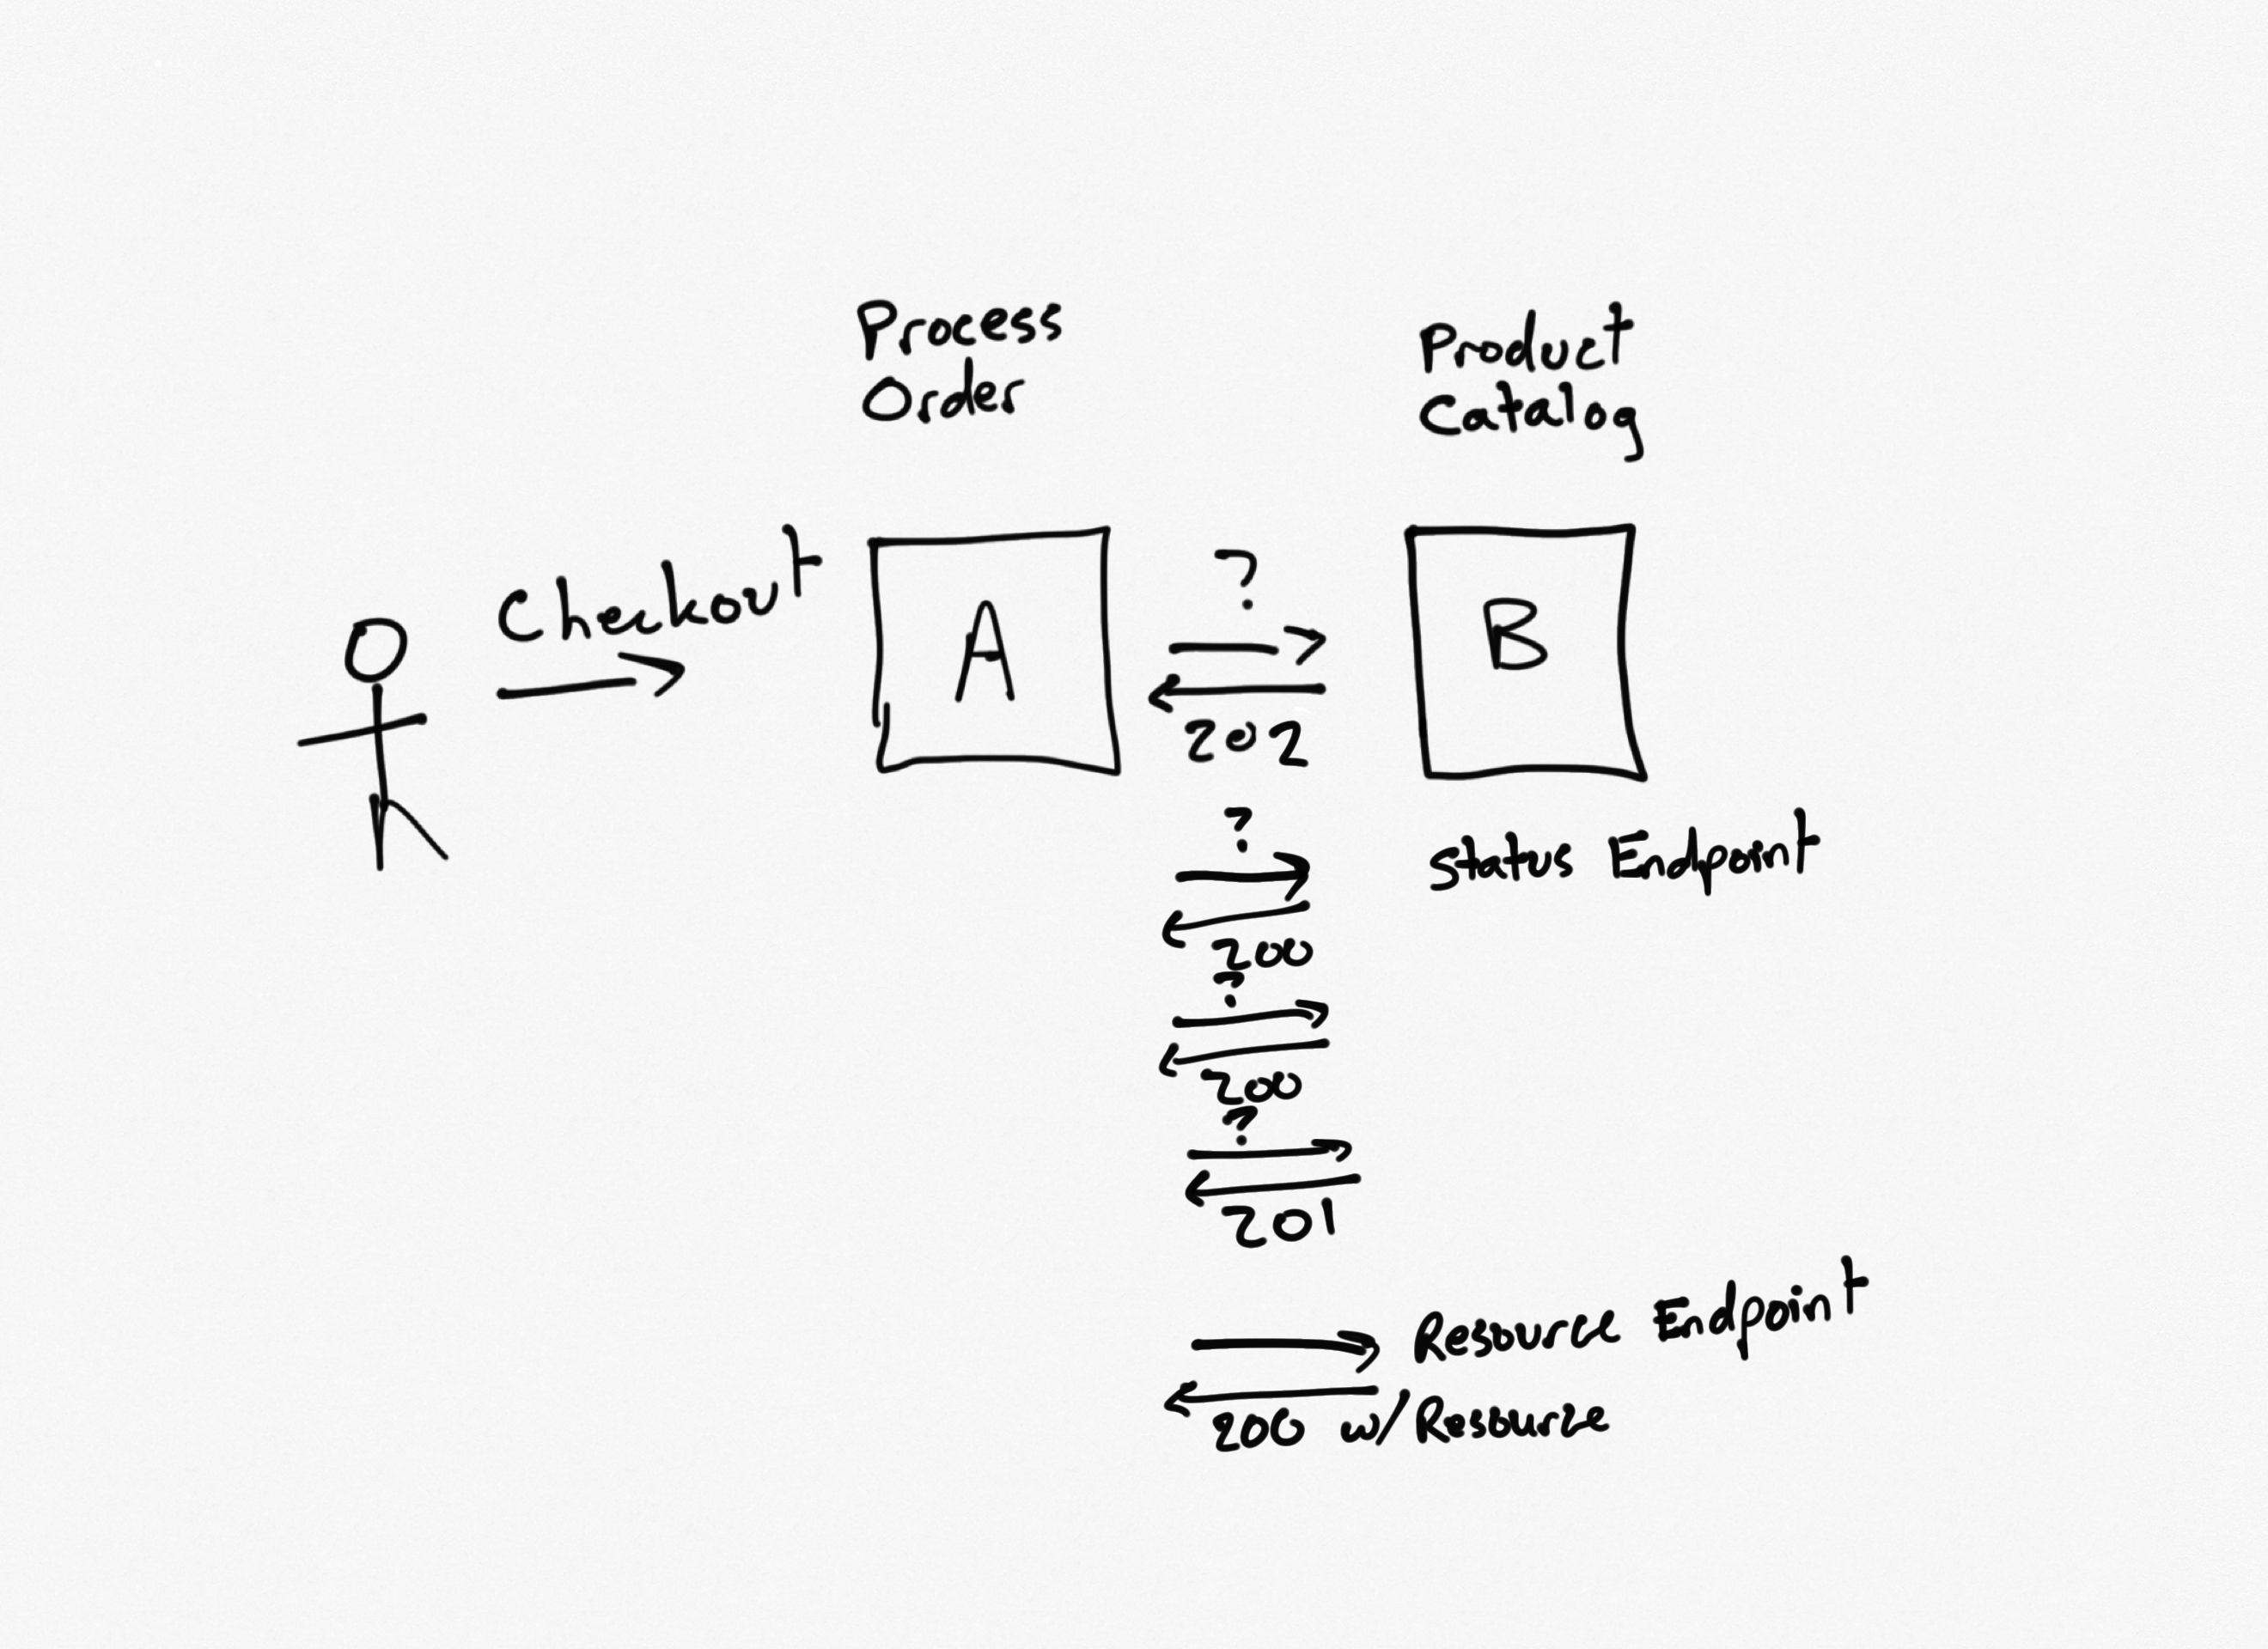 Process
Order
Product
Catalog
Checkout
A
?
B
202
?
Status Endpoint
200
?
200
?
201
Resource Endpoint
200 w/Resource